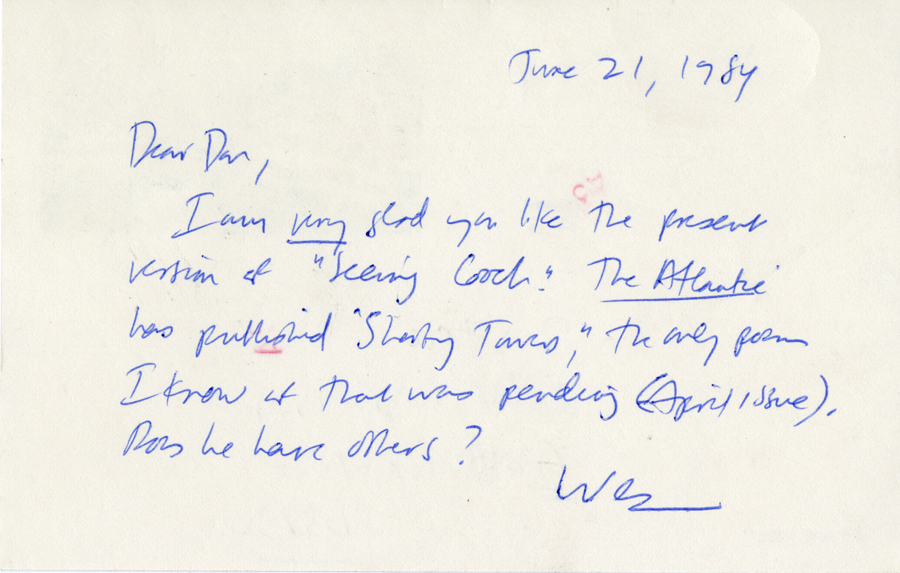 June 21, 1984
Dear Dan,
I am very glad you like the present
version of "Seeing Coach." The Atlantic
has published "Shooting Towers," the only poem
I know of that was pending (April issue).
Does he have others?
Wes